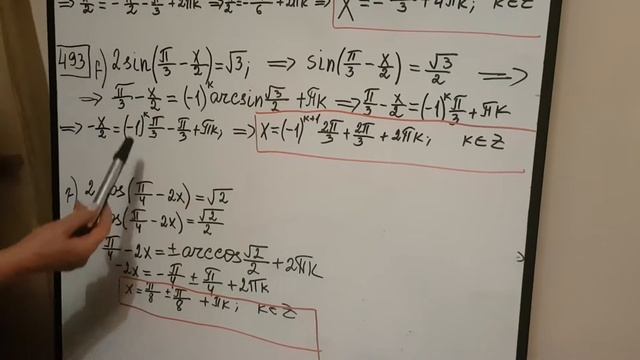 ⇒ x/2 = -π/2 - π/3 + 2πk ⇒ x/2 = -π/6 + 2πk ⇒ x = -π/3 + 4πk; k∈Z
493 f) 2sin(π/3 - x/2) = √3; ⇒ sin(π/3 - x/2) = √3/2 ⇒
⇒ π/3 - x/2 = (-1)^k arcsin √3/2 + πk ⇒ π/3 - x/2 = (-1)^k π/3 + πk
⇒ -x/2 = (-1)^k π/3 - π/3 + πk; ⇒ x = (-1)^(k+1) 2π/3 + 2π/3 + 2πk; k∈Z
f) 2 cos(π/4 - 2x) = √2
cos(π/4 - 2x) = √2/2
π/4 - 2x = ± arccos √2/2 + 2πk
-2x = -π/4 ± π/4 + 2πk
x = π/8 ± π/8 + πk; k∈Z